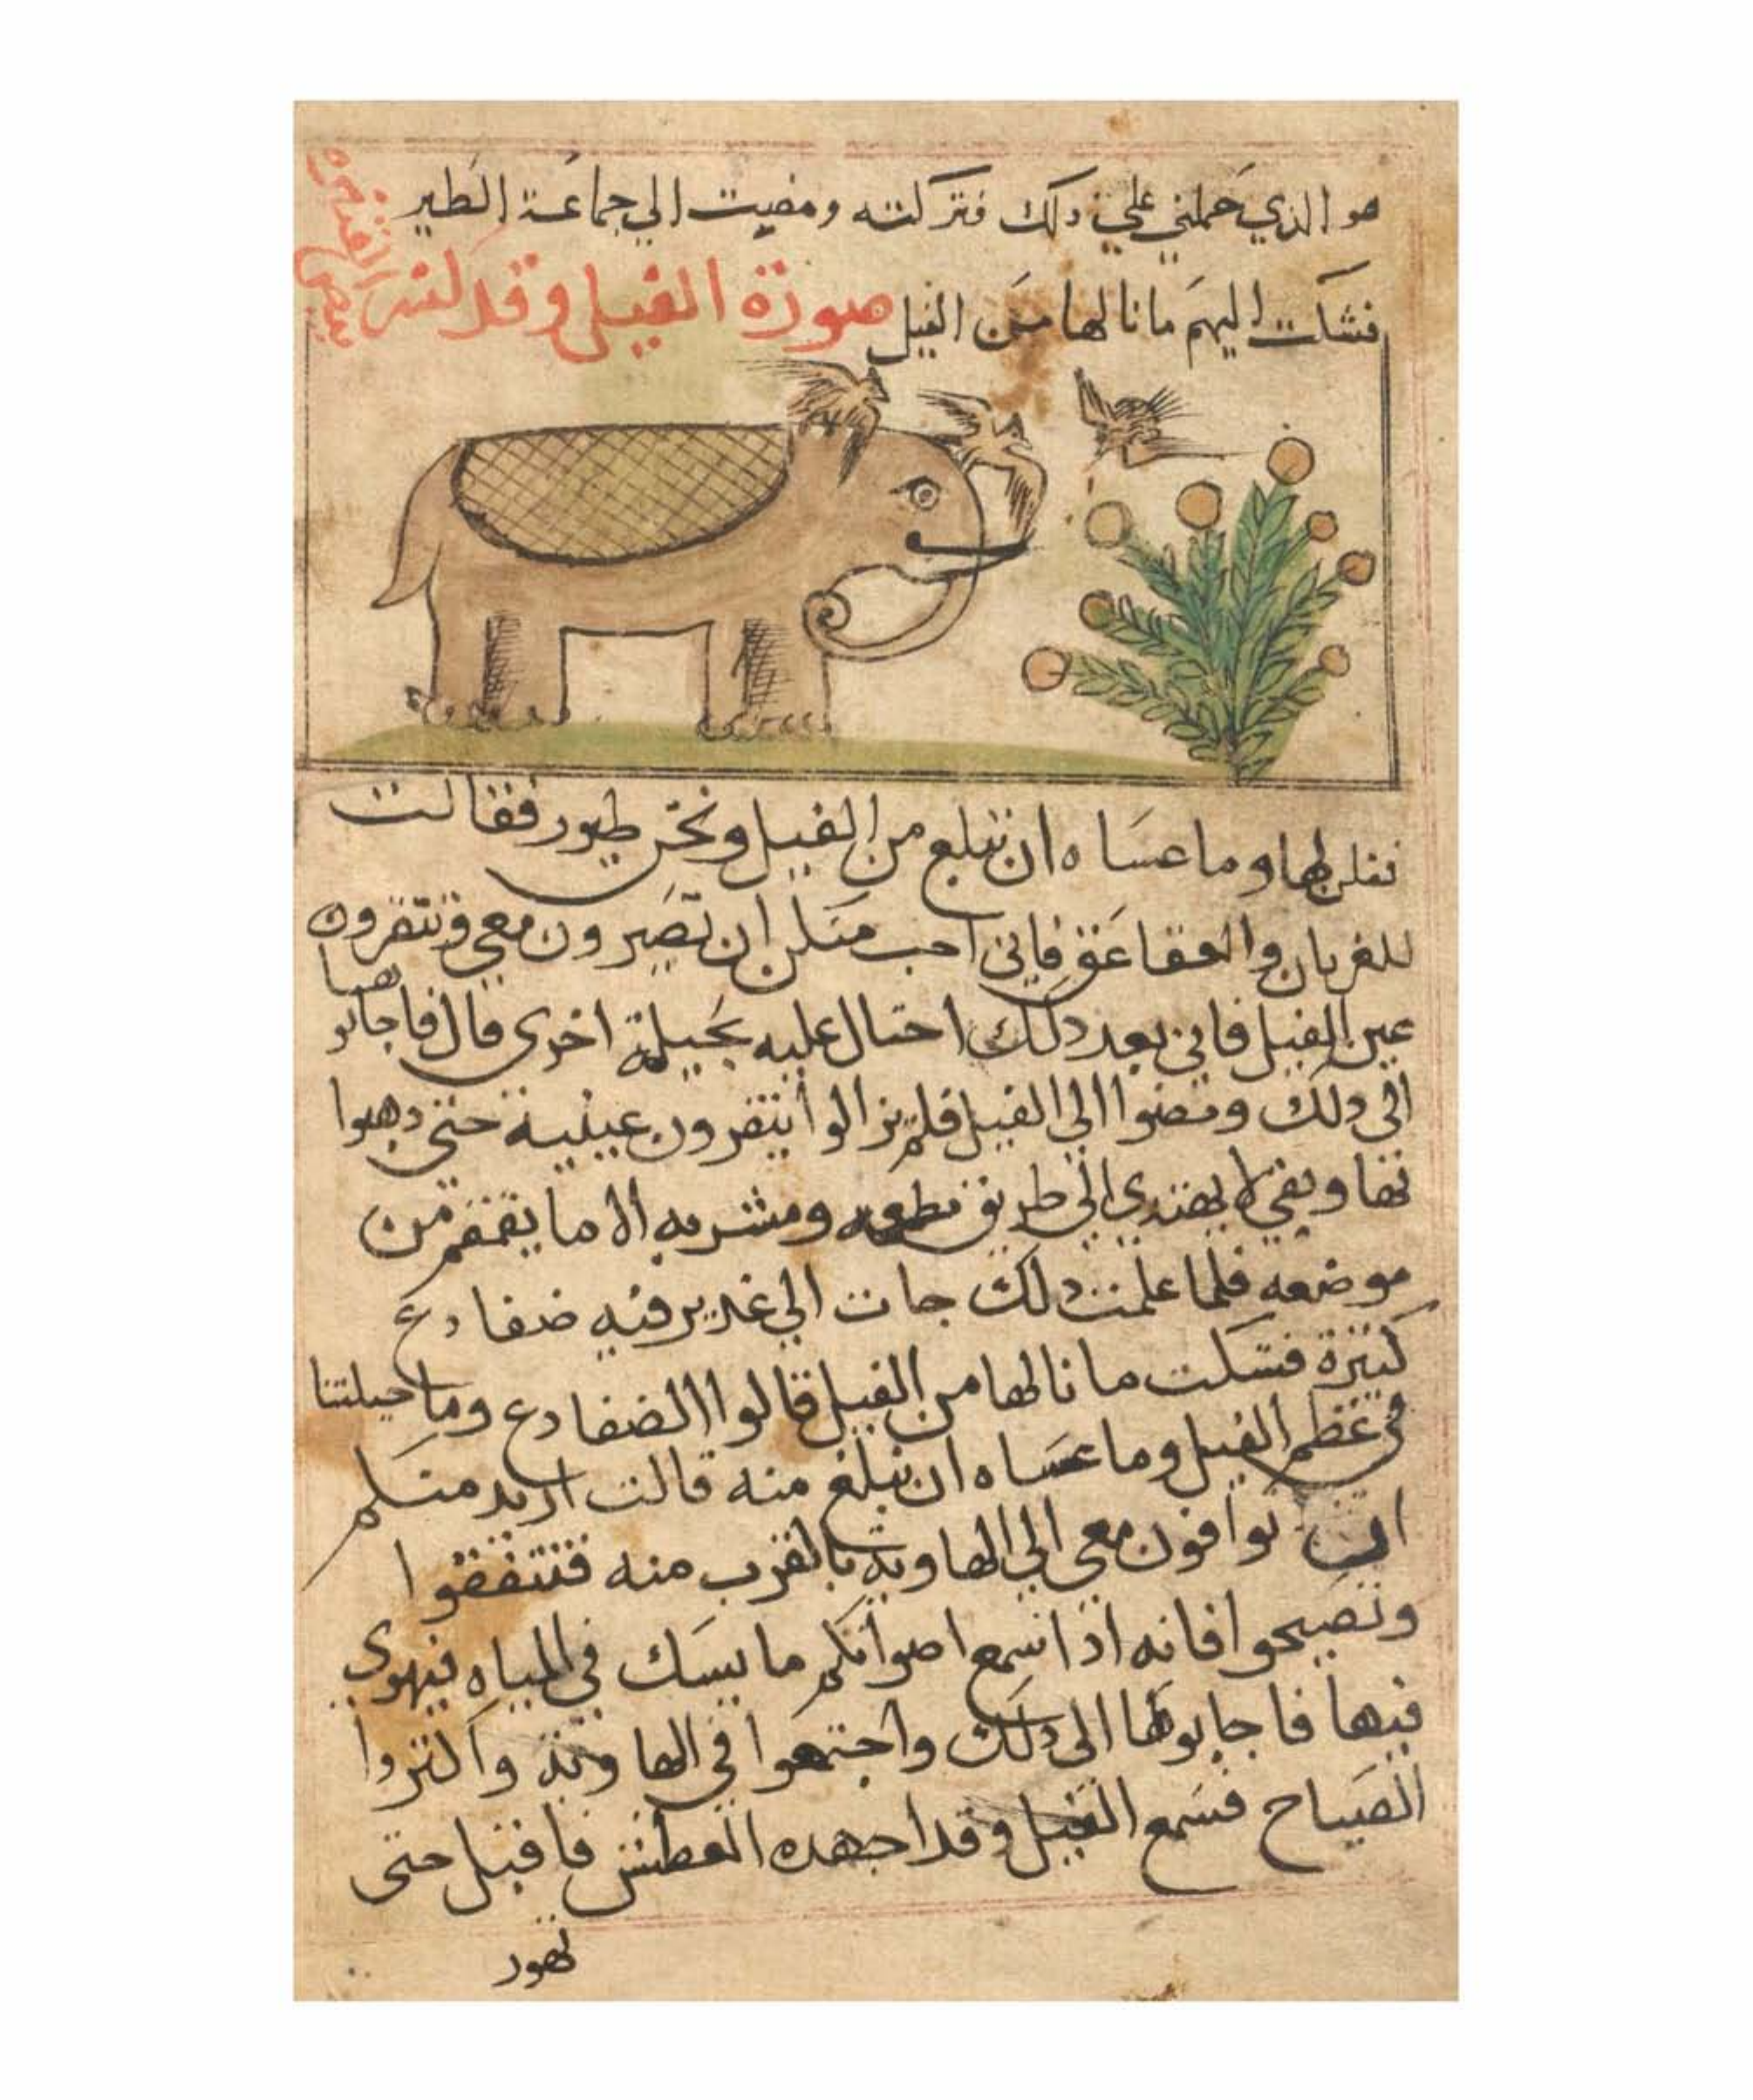 هو الذي حملني علي ذلك فتركته ومضيت الي جماعة الطير
فشكت اليهم ما نالها من الفيل
صورة الفيل وقد كسر بيض القنبره
فقلن لها وما عساه ان نبلع من الفيل ونحن طيور فقالت
للغربان والعقاعق فاني احب منكن ان تصيرون معي وتنقرون
عين الفيل فاني بعد ذلك احتال عليه بحيلة اخري قال فاجابوها
الي ذلك ومضوا الي الفيل فلم يزالوا ينقرون عينيه حتي ذهبوا
بها وبقي لا يهتدي الي طريق مطعمه ومشربه الا ما يقمقم من
موضعه فلما علمت ذلك جات الي غدير فيه ضفادع
كثيرة فشكت ما نالها من الفيل قالوا الضفادع وما حيلتنا
في عظم الفيل وما عساه ان نبلغ منه قالت اريد منكم
ان توافون معي الي الهاوية بالقرب منه فتنقفوا
وتصيحوا فانه اذا سمع اصواتكم ما يشك في المياه فيهوي
فيها فاجابوها الي ذلك واجتمعوا في الهاوية واكثروا
الصياح فسمع الفيل وقد اجهده العطش فاقبل حتى